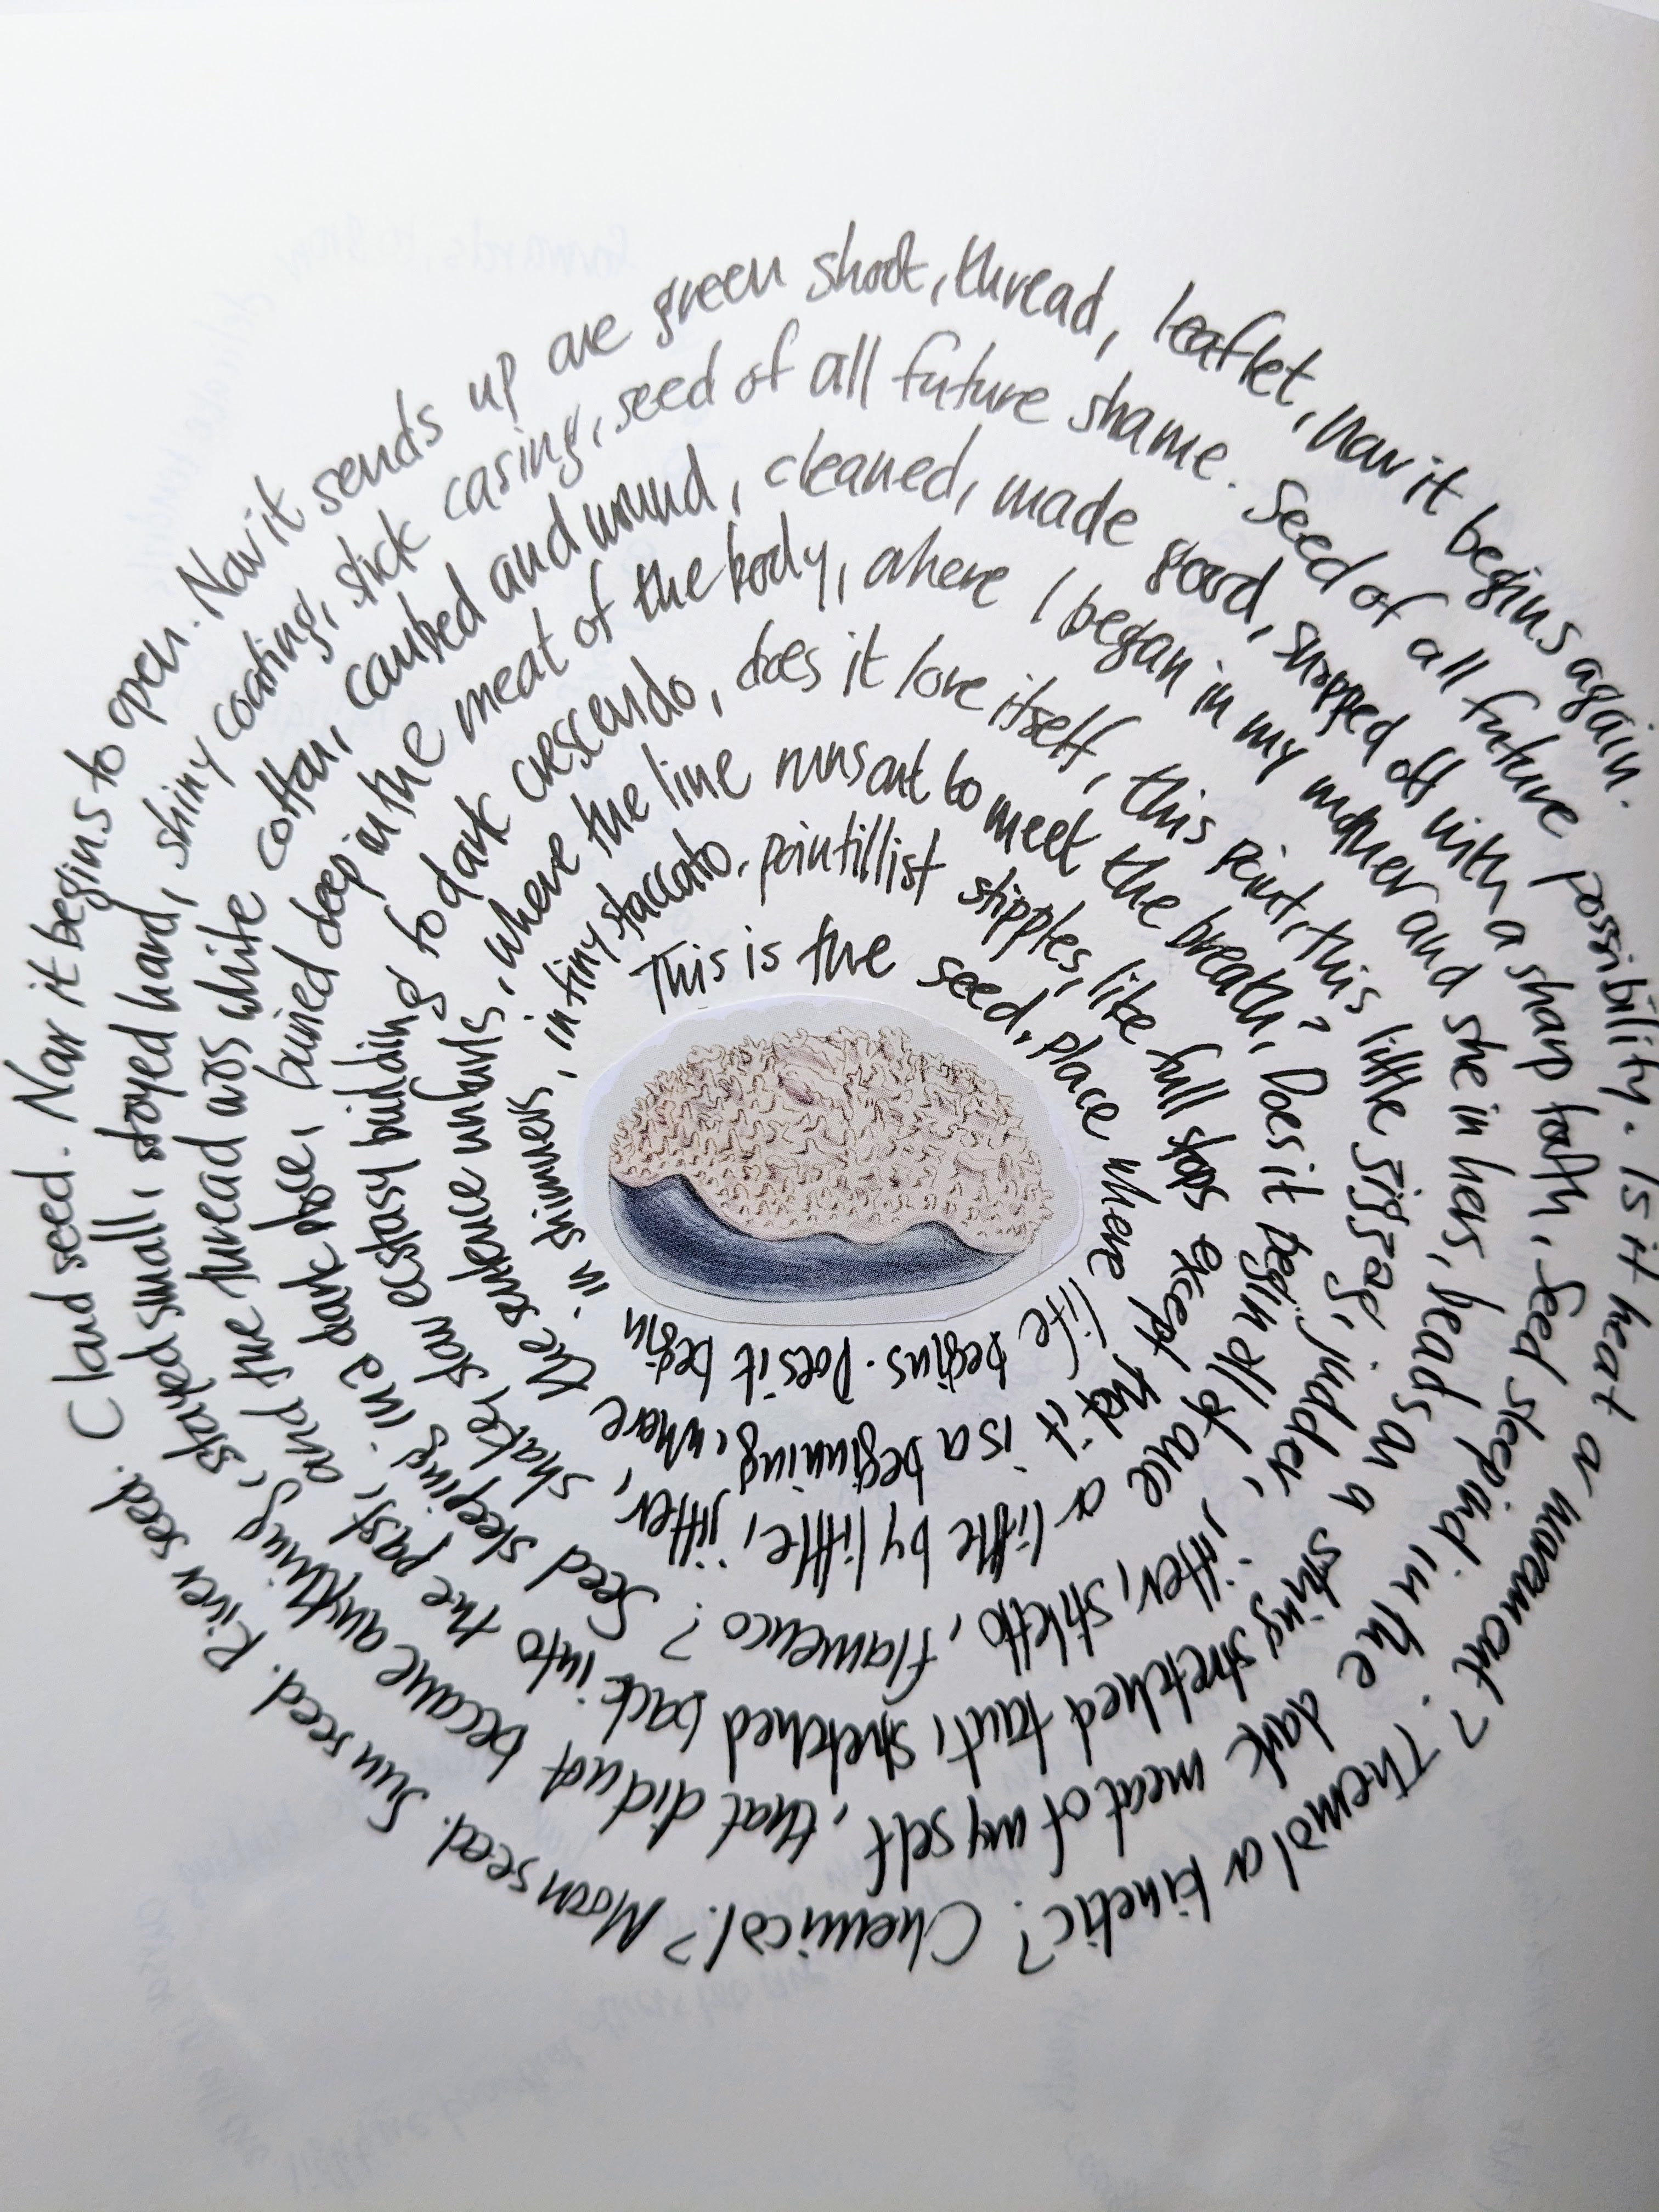 This is the seed, place where life begins. Does it begin
in shimmers, in tiny staccato, pointillist stipples, like full stops except that it is a beginning, where
the sentence unfurls, where the line runs out to meet the breath? Does it begin all at once or little by little, jitter,
shake, slow ecstasy building to dark crescendo, does it love itself, this point, this little zigzag, judder, jitter, stiletto, flamenco? Seed
sleeping in a dark place, buried deep in the meat of the body, where I began in my mother and she in hers, beads on a string stretched taut, stretched back into the past,
and the thread was white cotton, combed and wound, cleaned, made good, snipped off with a sharp tooth, seed sleeping in the dark meat of my self, that did not become anything,
stayed small, stayed hard, shiny coating, slick casing, seed of all future shame. Seed of all future possibility. Is it heat or movement? Thermal or kinetic? Chemical? Moon seed. Sun seed. River seed.
Cloud seed. Now it begins to open. Now it sends up one green shoot, thread, leaflet, now it begins again.